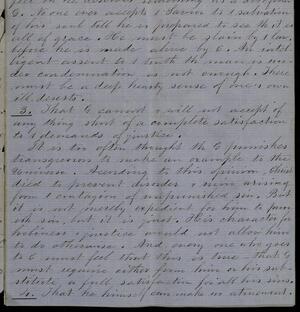 G. No one ever accepts & Saviour to & satisfaction
of this sent till he is prepared to see that it is
all of grace. He must be slain by & law,
before he is made alive by G. An intel-
ligent assent to & truth tha man is un-
der condemnation is not enough. There
must be a deep hearty sense of one's own
ill desert.
3. That G cannot & will not accept of
any thing short of a complete satisfaction
to & demands of justice.
It is too often thought tha G punishes
transgression to make an example to the
Universe. According to this opinion, Christ
died to prevent disorder & ruin arising
from & contagion of unpunished sin. But
it is not merely expedient for him to pun-
ish sin, but it is just. His character for
holiness & justice would not allow him
to do otherwise. And every one who goes
to G must feel that this is true that G
must require either from him or his sub-
stitute a full satisfaction for all his sins.
4. That he himself can make no atonement.